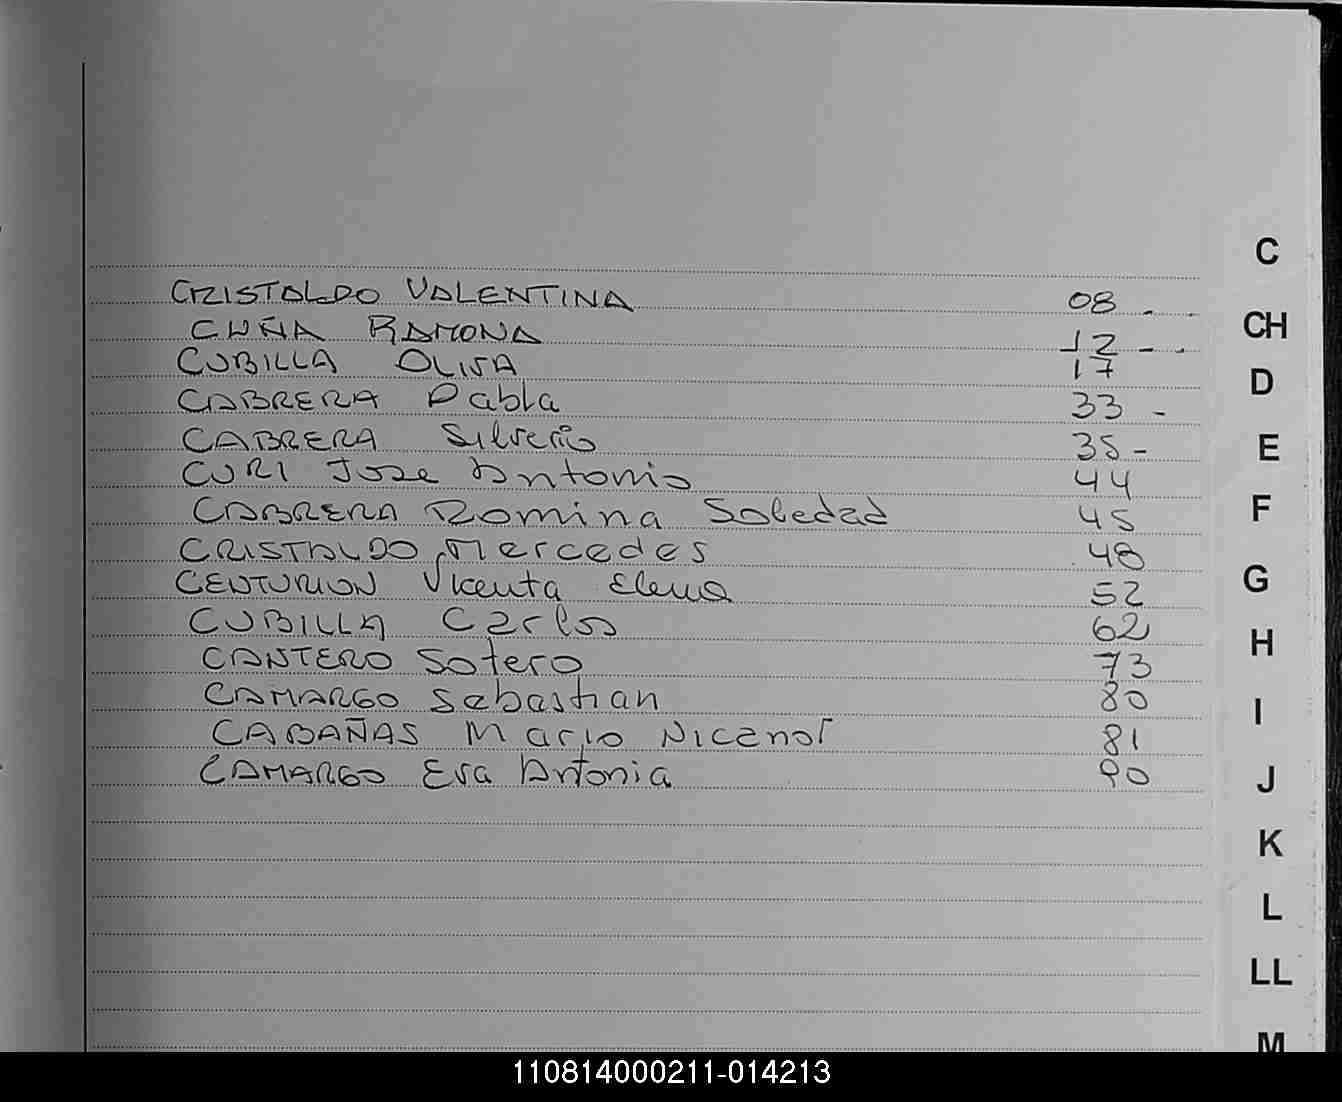 C
CRISTALDO VALENTINA 08 - -
CUÑA RAMONA 12 - -
CUBILLA OLISA 17
CABRERA Pabla 33 -
CABRERA Silverio 35 -
CURI Jose Antonio 44
CABRERA Romina Soledad 45
CRISTALDO Mercedes 48
CENTURION Vicenta Elena 52
CUBILLA Carlos 62
CANTERO Sotero 73
CAMARGO Sebastian 80
CABAÑAS Mario Nicanor 81
CAMARGO Eva Antonia 90
CH
D
E
F
G
H
I
J
K
L
LL
M
110814000211-014213